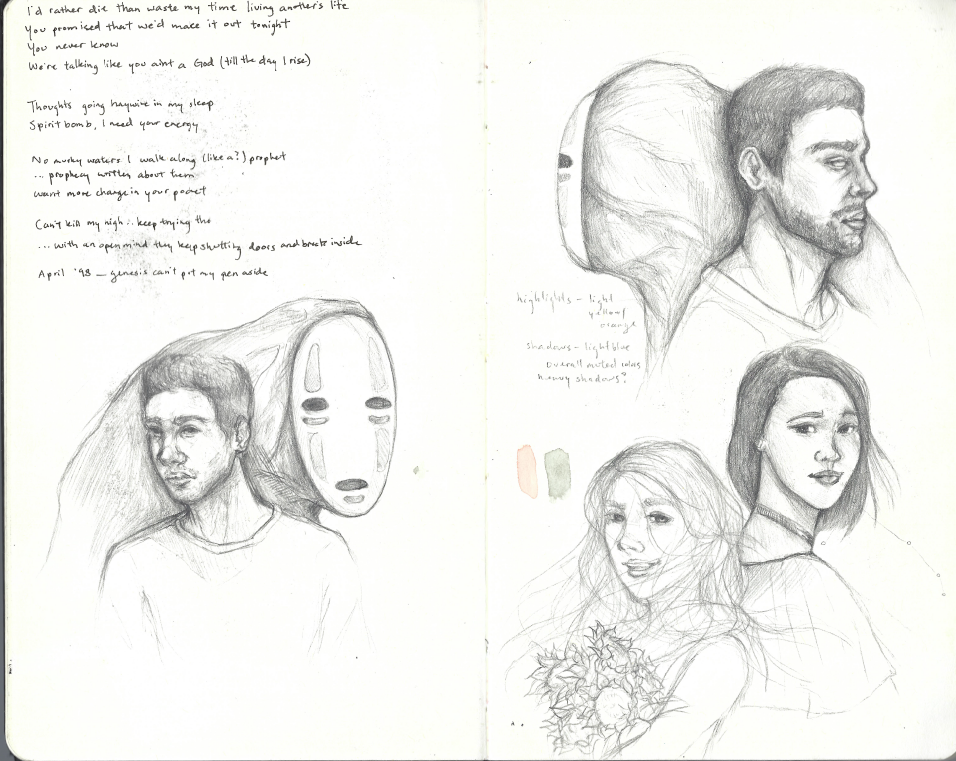 I'd rather die than waste my time living another's life
You promised that we'd make it out tonight
You never know
We're talking like you aint a God (till the day I rise)
Thoughts going haywire in my sleep
Spirit bomb, I need your energy
No murky waters I walk along (like a?) prophet
... prophecy written about them
want more change in your pocket
Can't kill my high .. keep trying tho
... with an open mind they keep shutting doors and break inside
April '98 — genesis can't put my pen aside
highlights - light
yellow/
orange
shadows - light blue
overall muted
heavy shadows?